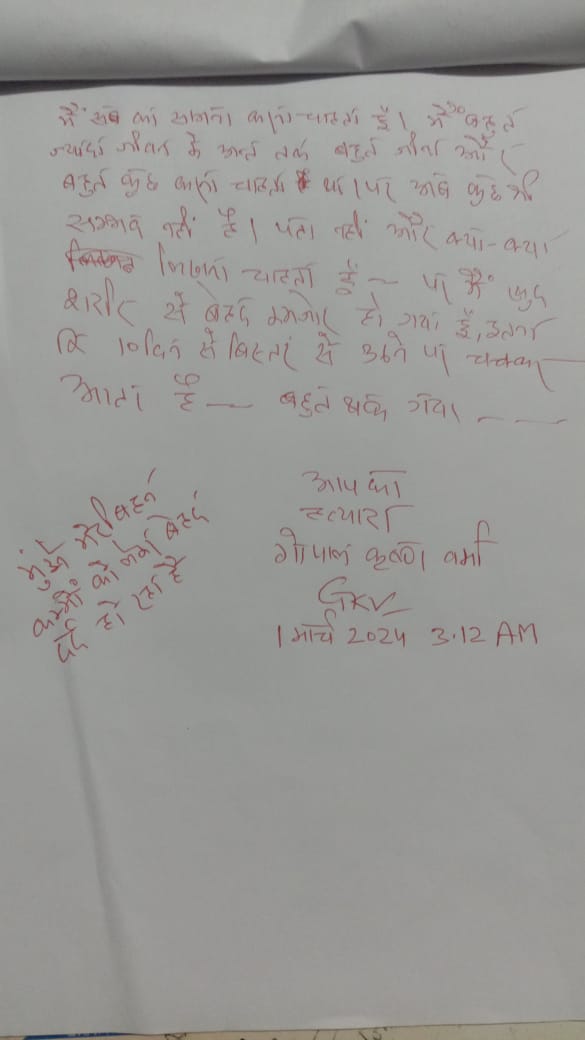 मैं सब का सामना करना चाहता हूँ। मैं बहुत
ज्यादा जीवन के अन्त तक बहुत जीना और
बहुत कुछ करना चाहता था। पर अब कुछ भी
सम्भव नहीं है। पता नहीं और क्या-क्या
लिखना चाहता हूँ — पर मैं खुद
शरीर से बेहद कमजोर हो गया हूँ, इतना
कि 10 दिन से बिस्तर से उठने पर चक्कर
आता है — बहुत थक गया — —
मुझे मेरी बहन
कम्मो को बेहद
दर्द हो रहा है
आप का
हत्यारा
गोपाल कृष्ण वर्मा
GKV
1 मार्च 2024 3.12 AM